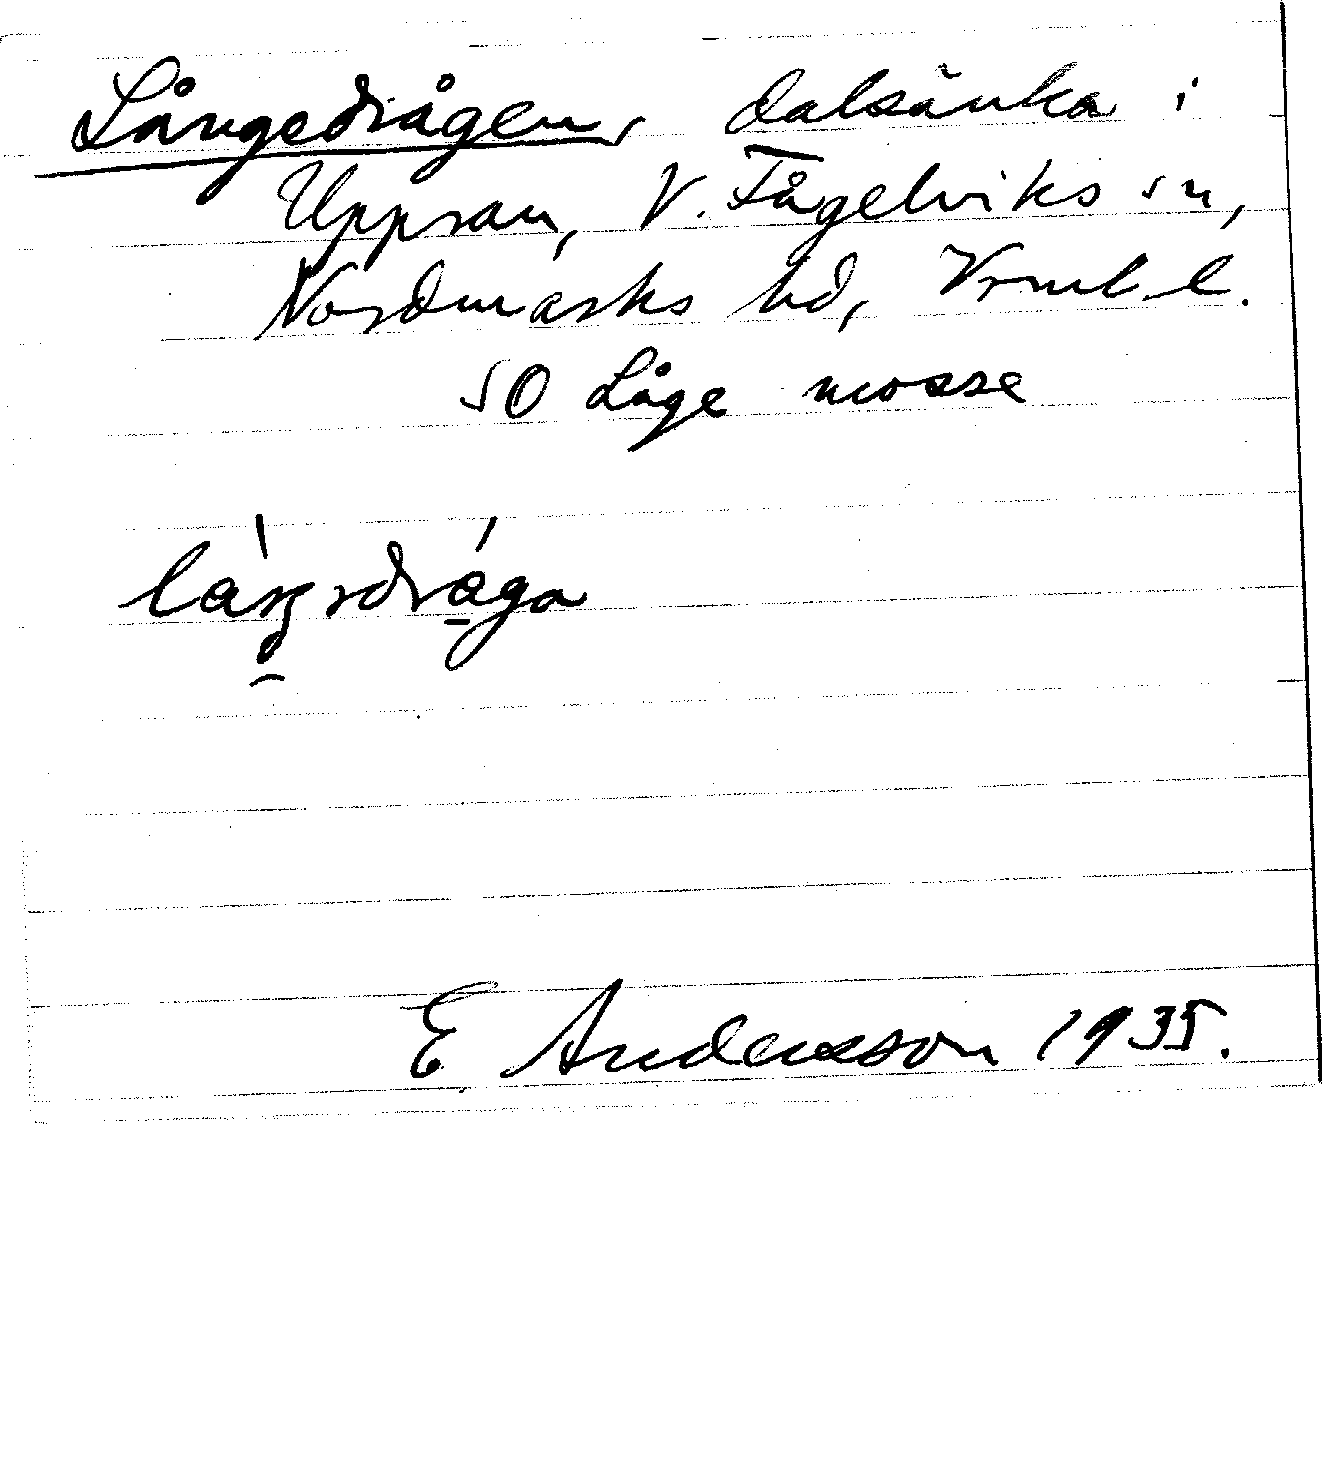 Långedrågen, dalsänka i
Uppsan, V. Fågelviks sn,
Nordmarks hd, Vrml. l.
SO Låge mosse
E. Andersson 1935.